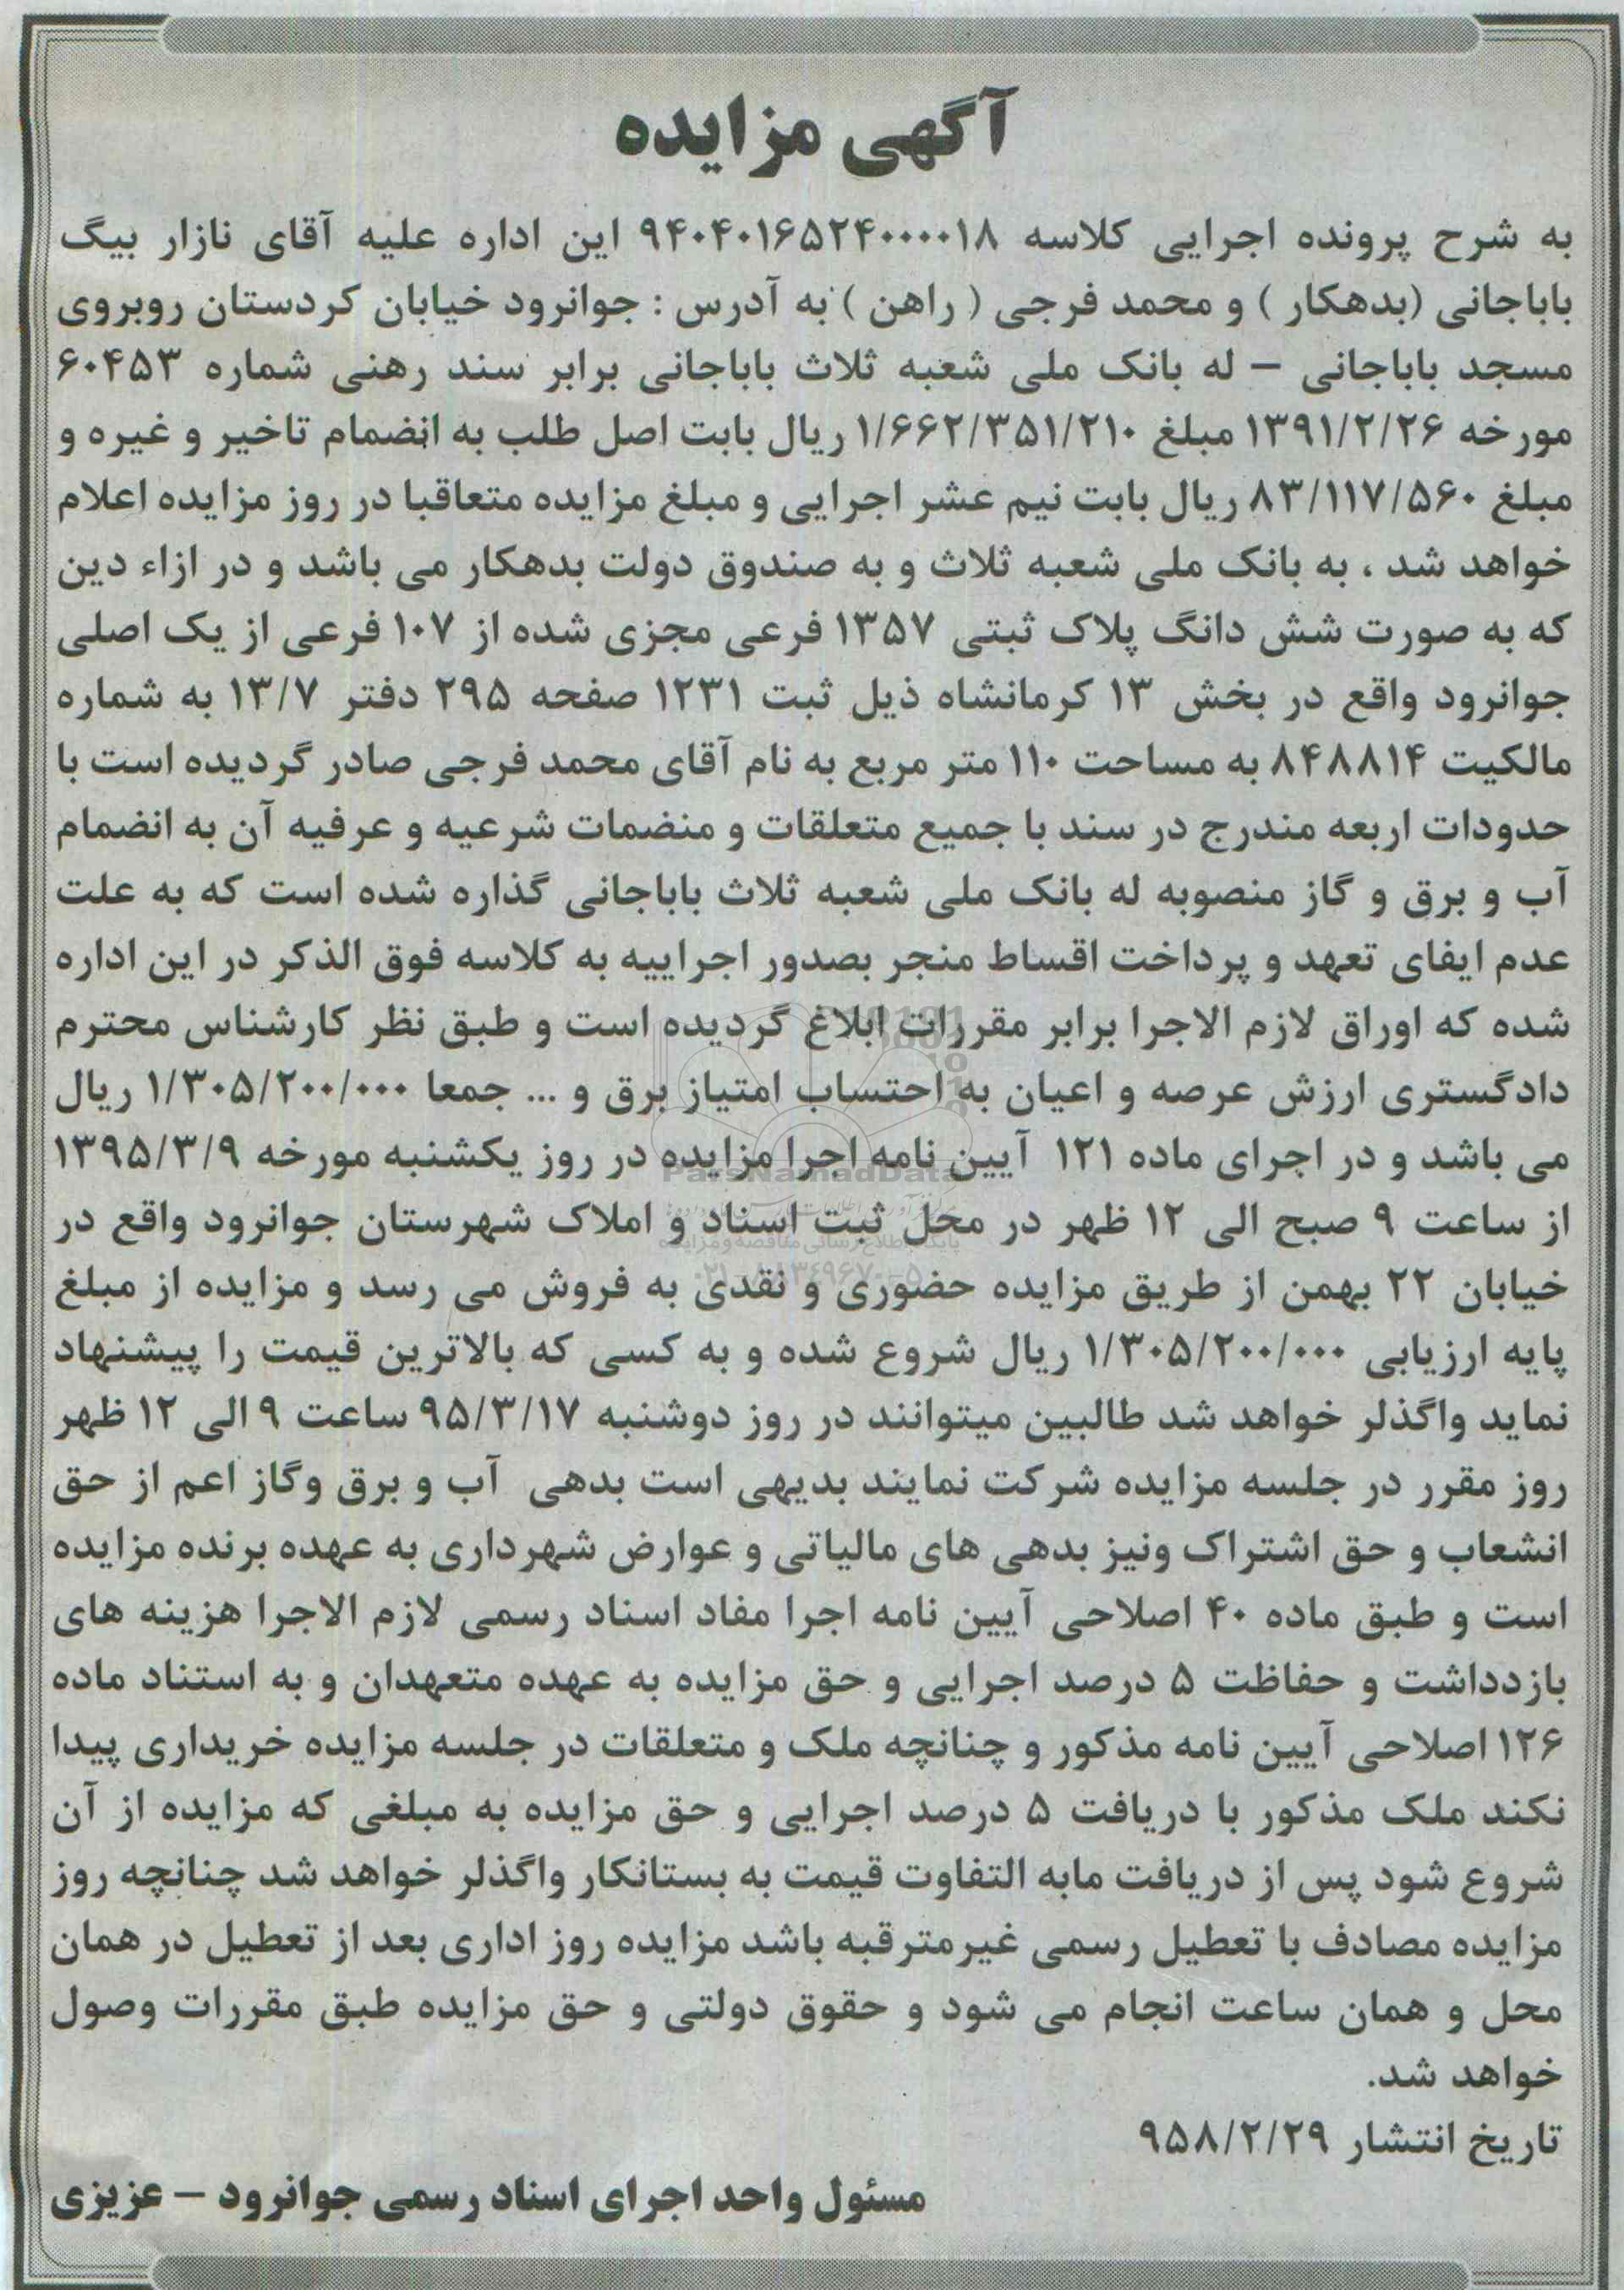 آگهی مزایده
به شرح پرونده اجرایی کلاسه ۹۴۰۴۰۱۶۵۲۴۰۰۰۰۱۸ این اداره علیه آقای نازار بیگ
باباجانی (بدهکار ) و محمد فرجی ( راهن ) به آدرس : جوانرود خیابان کردستان روبروی
مسجد باباجانی – له بانک ملی شعبه ثلاث باباجانی برابر سند رهنی شماره ۶۰۴۵۳
مورخه ۱۳۹۱/۲/۲۶ مبلغ ۱/۶۶۲/۳۵۱/۲۱۰ ریال بابت اصل طلب به انضمام تاخیر و غیره و
مبلغ ۸۳/۱۱۷/۵۶۰ ریال بابت نیم عشر اجرایی و مبلغ مزایده متعاقبا در روز مزایده اعلام
خواهد شد ، به بانک ملی شعبه ثلاث و به صندوق دولت بدهکار می باشد و در ازاء دین
که به صورت شش دانگ پلاک ثبتی ۱۳۵۷ فرعی مجزی شده از ۱۰۷ فرعی از یک اصلی
جوانرود واقع در بخش ۱۳ کرمانشاه ذیل ثبت ۱۲۳۱ صفحه ۲۹۵ دفتر ۱۳/۷ به شماره
مالکیت ۸۴۸۸۱۴ به مساحت ۱۱۰ متر مربع به نام آقای محمد فرجی صادر گردیده است با
حدودات اربعه مندرج در سند با جمیع متعلقات و منضمات شرعیه و عرفیه آن به انضمام
آب و برق و گاز منصوبه له بانک ملی شعبه ثلاث باباجانی گذاره شده است که به علت
عدم ایفای تعهد و پرداخت اقساط منجر بصدور اجراییه به کلاسه فوق الذکر در این اداره
شده که اوراق لازم الاجرا برابر مقررات ابلاغ گردیده است و طبق نظر کارشناس محترم
دادگستری ارزش عرصه و اعیان به احتساب امتیاز برق و ... جمعا ۱/۳۰۵/۲۰۰/۰۰۰ ریال
می باشد و در اجرای ماده ۱۲۱ آیین نامه اجرا مزایده در روز یکشنبه مورخه ۱۳۹۵/۳/۹
از ساعت ۹ صبح الی ۱۲ ظهر در محل ثبت اسناد و املاک شهرستان جوانرود واقع در
خیابان ۲۲ بهمن از طریق مزایده حضوری و نقدی به فروش می رسد و مزایده از مبلغ
پایه ارزیابی ۱/۳۰۵/۲۰۰/۰۰۰ ریال شروع شده و به کسی که بالاترین قیمت را پیشنهاد
نماید واگذلر خواهد شد طالبین میتوانند در روز دوشنبه ۹۵/۳/۱۷ ساعت ۹ الی ۱۲ ظهر
روز مقرر در جلسه مزایده شرکت نمایند بدیهی است بدهی آب و برق وگاز اعم از حق
انشعاب و حق اشتراک ونیز بدهی های مالیاتی و عوارض شهرداری به عهده برنده مزایده
است و طبق ماده ۴۰ اصلاحی آیین نامه اجرا مفاد اسناد رسمی لازم الاجرا هزینه های
بازدداشت و حفاظت ۵ درصد اجرایی و حق مزایده به عهده متعهدان و به استناد ماده
۱۲۶ اصلاحی آیین نامه مذکور و چنانچه ملک و متعلقات در جلسه مزایده خریداری پیدا
نکند ملک مذکور با دریافت ۵ درصد اجرایی و حق مزایده به مبلغی که مزایده از آن
شروع شود پس از دریافت مابه التفاوت قیمت به بستانکار واگذلر خواهد شد چنانچه روز
مزایده مصادف با تعطیل رسمی غیرمترقبه باشد مزایده روز اداری بعد از تعطیل در همان
محل و همان ساعت انجام می شود و حقوق دولتی و حق مزایده طبق مقررات وصول
خواهد شد.
تاریخ انتشار ۹۵۸/۲/۲۹
مسئول واحد اجرای اسناد رسمی جوانرود – عزیزی
ParsNamadData
پایگاه اطلاع رسانی مناقصه و مزایده